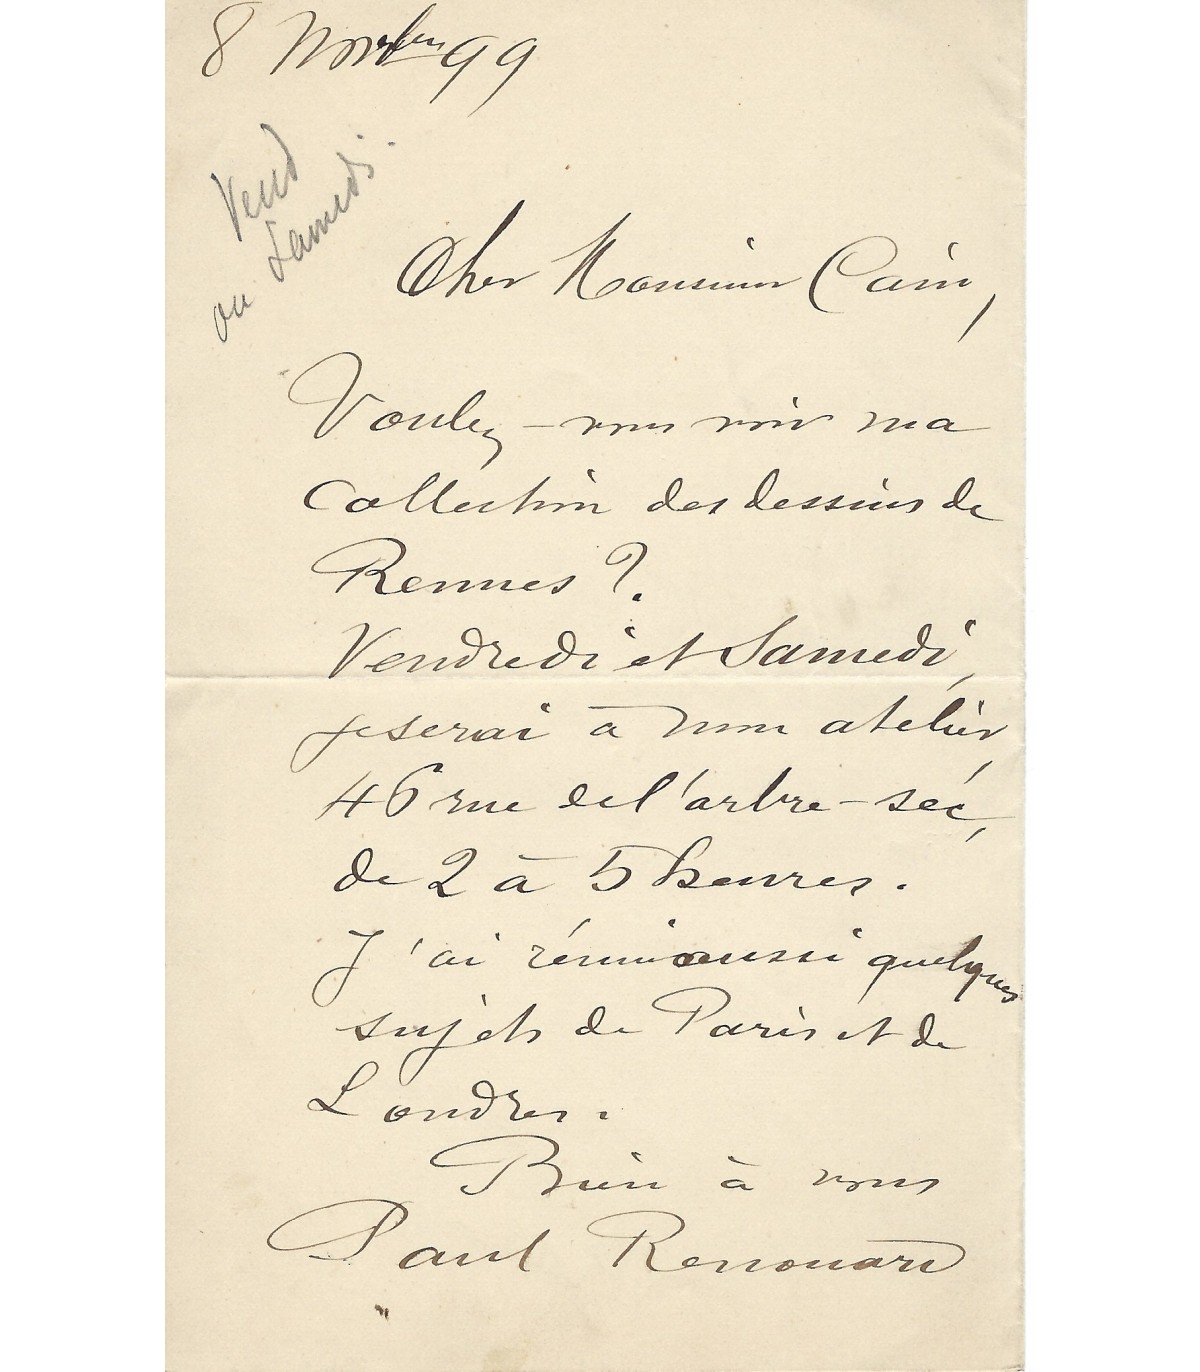 8 Novbre 99
Vend
ou Samedi.
Cher Monsieur Cain,
Voulez-vous voir ma
collection des dessins de
Rennes ?.
Vendredi et Samedi,
je serai à mon atelier,
46 rue de l'arbre-sec,
de 2 à 5 heures.
J'ai réuni aussi quelques
sujets de Paris et de
Londres.
Bien à vous
Paul Renouard